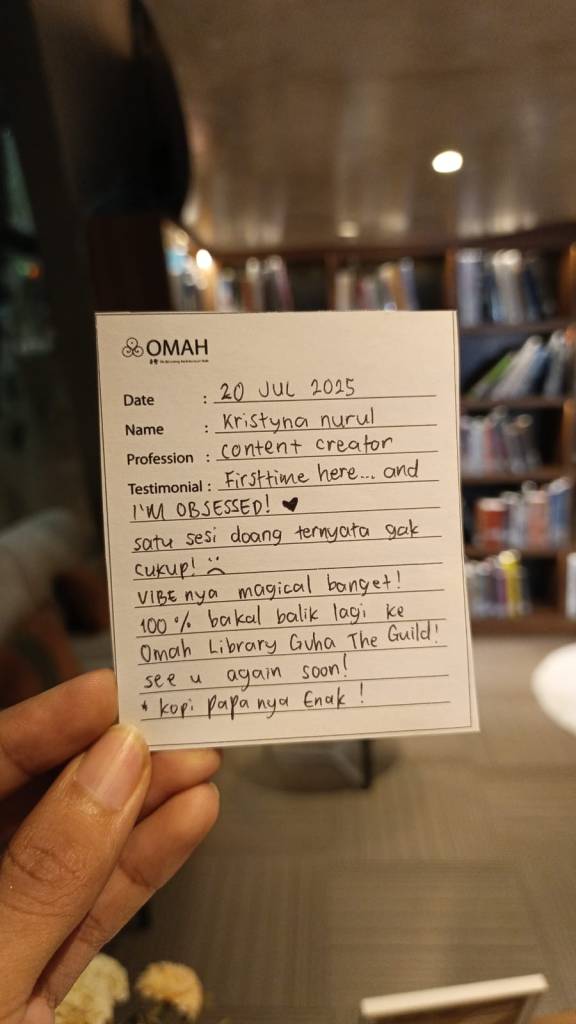 OMAH
Date : 20 JUL 2025
Name : Kristyna nurul
Profession : content creator
Testimonial : Firsttime here... and
I'M OBSESSED! ♥
satu sesi doang ternyata gak
cukup! :(
VIBE nya magical banget!
100% bakal balik lagi ke
Omah Library Guha The Guild!
see u again soon!
* kopi papa nya Enak !